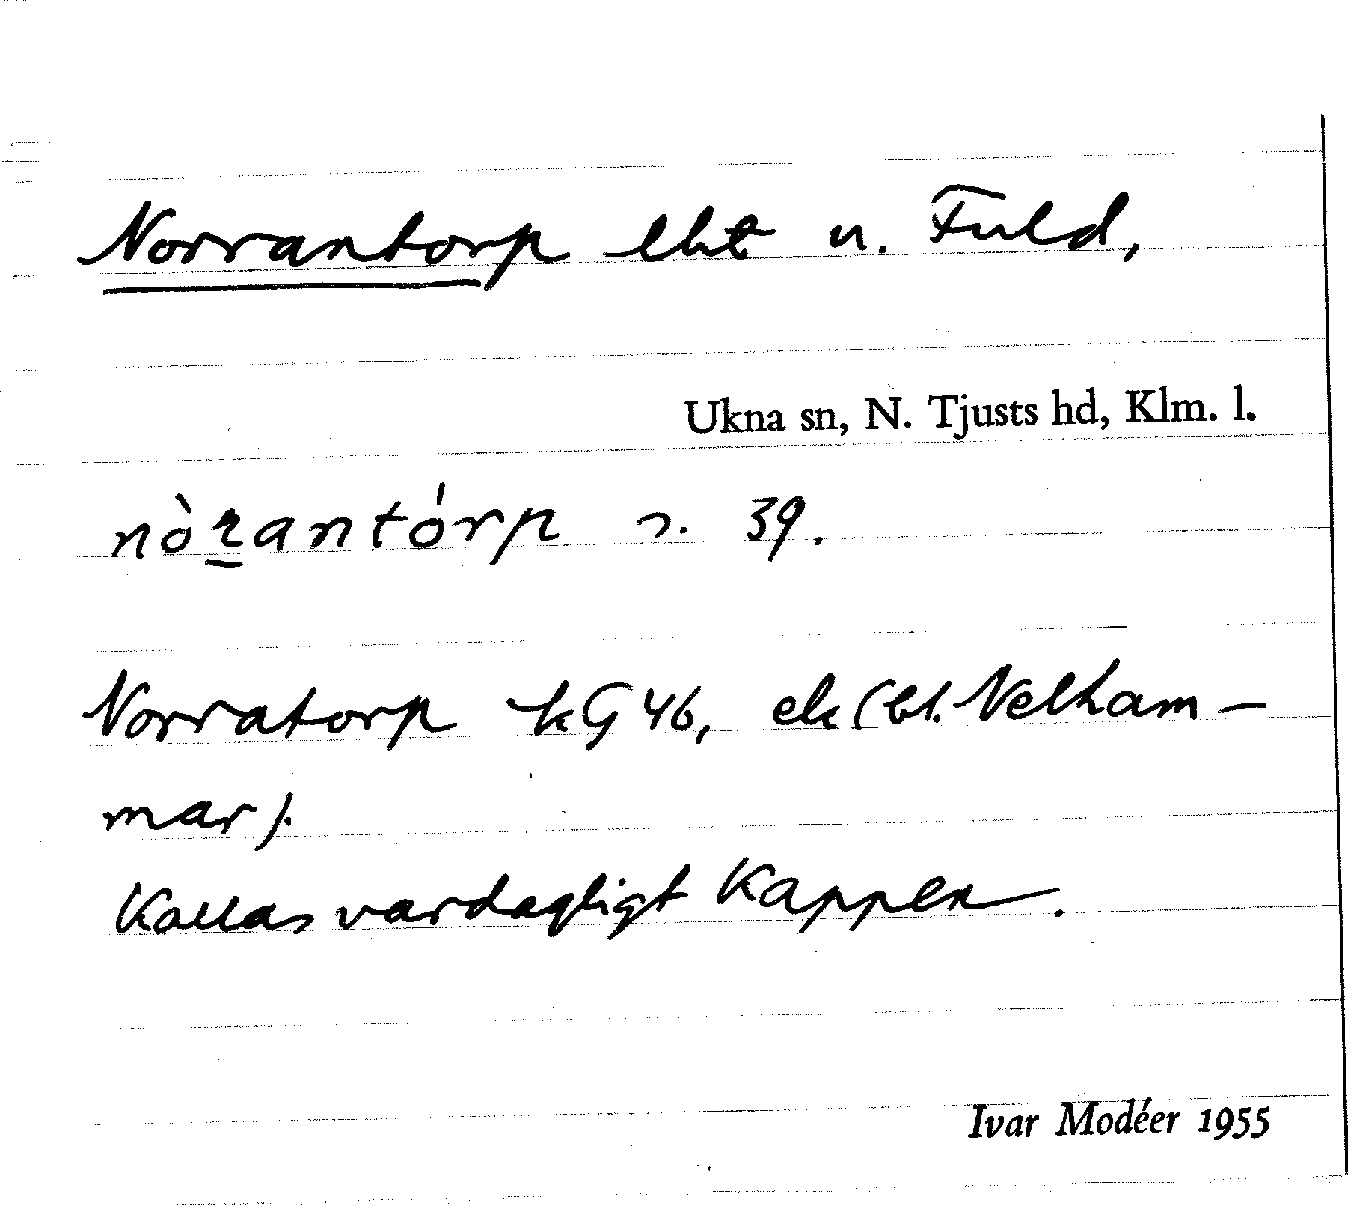 Norrantorp lht u. Fuld,
Ukna sn, N. Tjusts hd, Klm. l.
nòrantórp r. 39.
Norratorp kG 46, ek (bl. Nelham-
mar).
Kallas vardagligt Kappen.
Ivar Modéer 1955